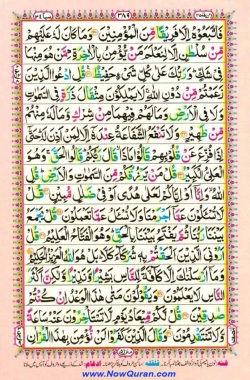 ٣٨٩
فَاتَّبَعُوْهُ اِلَّا فَرِيْقًا مِّنَ الْمُؤْمِنِيْنَ وَمَا كَانَ لَهٗ عَلَيْهِمْ
مِّنْ سُلْطٰنٍ اِلَّا لِنَعْلَمَ مَنْ يُّؤْمِنُ بِالْاٰخِرَةِ مِمَّنْ هُوَ مِنْهَا
فِيْ شَكٍّ وَرَبُّكَ عَلٰى كُلِّ شَيْءٍ حَفِيْظٌ قُلِ ادْعُوا الَّذِيْنَ
زَعَمْتُمْ مِّنْ دُوْنِ اللّٰهِ لَا يَمْلِكُوْنَ مِثْقَالَ ذَرَّةٍ فِي السَّمٰوٰتِ
وَلَا فِي الْاَرْضِ وَمَا لَهُمْ فِيْهِمَا مِنْ شِرْكٍ وَّمَا لَهٗ مِنْهُمْ
مِّنْ ظَهِيْرٍ وَلَا تَنْفَعُ الشَّفَاعَةُ عِنْدَهٗٓ اِلَّا لِمَنْ اَذِنَ لَهٗ حَتّٰٓى
اِذَا فُزِّعَ عَنْ قُلُوْبِهِمْ قَالُوْا مَاذَا قَالَ رَبُّكُمْ قَالُوا الْحَقَّ وَهُوَ
الْعَلِيُّ الْكَبِيْرُ قُلْ مَنْ يَّرْزُقُكُمْ مِّنَ السَّمٰوٰتِ وَالْاَرْضِ قُلِ
اللّٰهُ وَاِنَّآ اَوْ اِيَّاكُمْ لَعَلٰى هُدًى اَوْ فِيْ ضَلٰلٍ مُّبِيْنٍ قُلْ
لَّا تُسْـَٔلُوْنَ عَمَّآ اَجْرَمْنَا وَلَا نُسْـَٔلُ عَمَّا تَعْمَلُوْنَ قُلْ يَجْمَعُ
بَيْنَنَا رَبُّنَا ثُمَّ يَفْتَحُ بَيْنَنَا بِالْحَقِّ وَهُوَ الْفَتَّاحُ الْعَلِيْمُ قُلْ
اَرُوْنِيَ الَّذِيْنَ اَلْحَقْتُمْ بِهٖ شُرَكَآءَ كَلَّا بَلْ هُوَ اللّٰهُ الْعَزِيْزُ الْحَكِيْمُ
وَمَآ اَرْسَلْنٰكَ اِلَّا كَآفَّةً لِّلنَّاسِ بَشِيْرًا وَّنَذِيْرًا وَّلٰكِنَّ اَكْثَرَ
النَّاسِ لَا يَعْلَمُوْنَ وَيَقُوْلُوْنَ مَتٰى هٰذَا الْوَعْدُ اِنْ كُنْتُمْ
صٰدِقِيْنَ قُلْ لَّكُمْ مِّيْعَادُ يَوْمٍ لَّا تَسْتَاْخِرُوْنَ عَنْهُ سَاعَةً
وَّلَا تَسْتَقْدِمُوْنَ وَقَالَ الَّذِيْنَ كَفَرُوْا لَنْ نُّؤْمِنَ بِهٰذَا الْقُرْاٰنِ
www.NowQuran.com